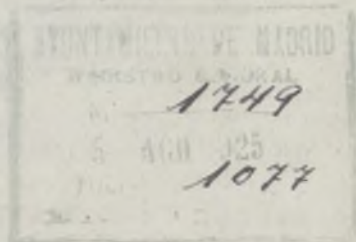 AYUNTAMIENTO DE MADRID
REGISTRO GENERAL
N. 1749
5 AGO 925
1077